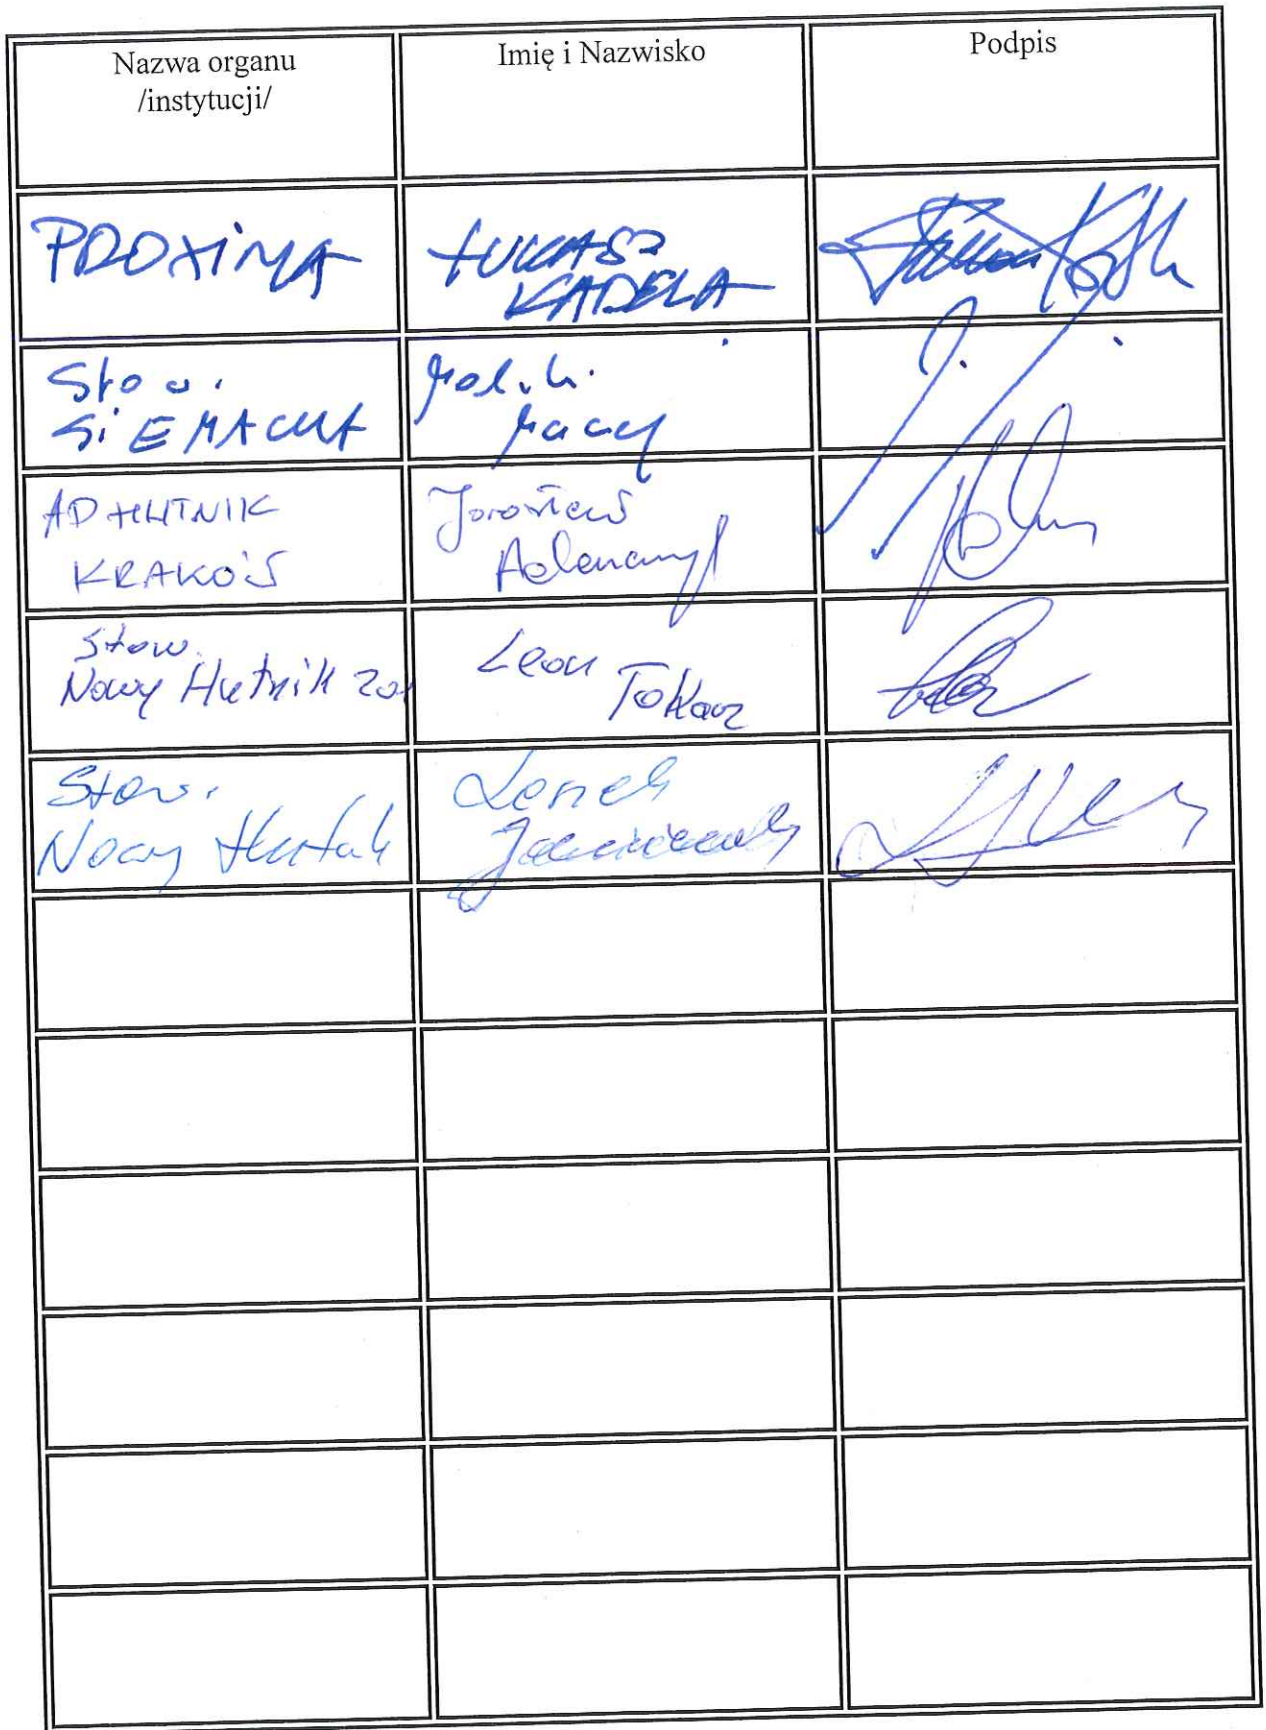 Nazwa organu
/instytucji/
Imię i Nazwisko
Podpis
PROXIMA
ŁUKASZ
KADELA
Stow.
SIEMACHA
AD HUTNIK
KRAKÓW
Jarosław
Stow.
Nowy Hutnik 20
Leon
Tokarz
Stow.
Nowy Hutnik
Leszek